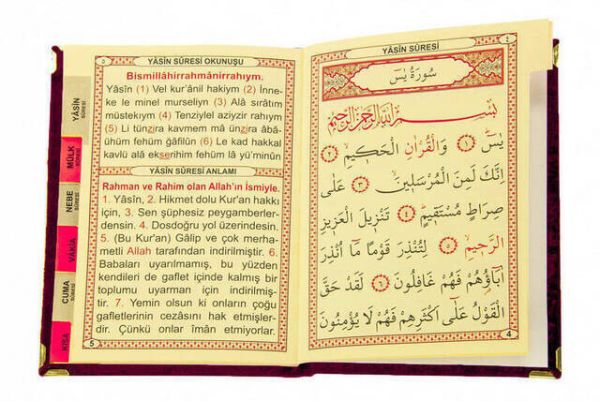 YÂSİN SÛRESİ
MÜLK
SÛRESİ
NEBE
SÛRESİ
VÂKIA
CUMA
SÛRESİ
KISA
٥
YÂSİN SÛRESİ OKUNUŞU
Bismillâhirrahmânirrahıym.
Yâsîn (1) Vel kur'ânil hakiym (2) İnne-
ke le minel murseliyn (3) Alâ sırâtım
müstekıym (4) Tenziylel aziyzir rahıym
(5) Li tünzira kavmem mâ ünzira âbâ-
ühüm fehüm ğâfilûn (6) Le kad hakkal
kavlü alâ ekserihim fehüm lâ yü'minûn
YÂSİN SÛRESİ ANLAMI
Rahman ve Rahim olan Allah'ın İsmiyle.
1. Yâsîn, 2. Hikmet dolu Kur'an hakkı
için, 3. Sen şüphesiz peygamberler-
densin. 4. Dosdoğru yol üzerindesin.
5. (Bu Kur'an) Gâlip ve çok merha-
metli Allah tarafından indirilmiştir. 6.
Babaları uyarılmamış, bu yüzden
kendileri de gaflet içinde kalmış bir
toplumu uyarman için indirilmiş-
tir. 7. Yemin olsun ki onların çoğu
gafletlerinin cezasını hak etmişler-
dir. Çünkü onlar îmân etmiyorlar.
5
٤
YÂSİN SÛRESİ
سُورَةُ يٰسٓ
بِسْمِ اللّٰهِ الرَّحْمٰنِ الرَّحِيمِ
يٰسٓ ﴿١﴾ وَالْقُرْاٰنِ الْحَكِيمِ ﴿٢﴾
اِنَّكَ لَمِنَ الْمُرْسَلِينَ ﴿٣﴾ عَلٰى
صِرَاطٍ مُسْتَقِيمٍ ﴿٤﴾ تَنْزِيلَ الْعَزِيزِ
الرَّحِيمِ ﴿٥﴾ لِتُنْذِرَ قَوْمًا مَٓا اُنْذِرَ
اٰبَٓاؤُهُمْ فَهُمْ غَافِلُونَ ﴿٦﴾ لَقَدْ حَقَّ
الْقَوْلُ عَلٰٓى اَكْثَرِهِمْ فَهُمْ لَا يُؤْمِنُونَ
4